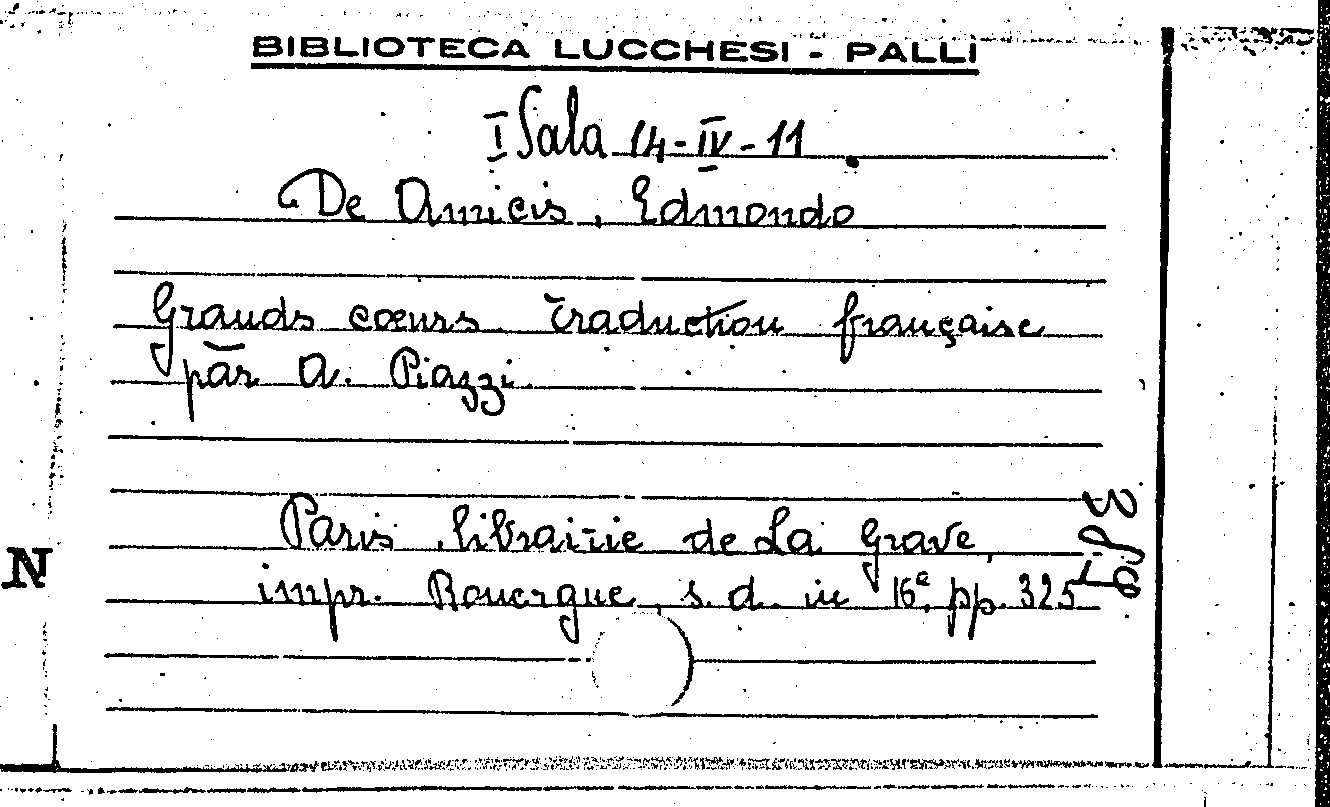 BIBLIOTECA LUCCHESI - PALLI
I Sala 14-IV-11
De Amicis, Edmondo
Grands cœurs. Traduction française
par A. Piazzi.
Paris, librairie de La Grave,
impr. Rouergue, s. d. in 16°, pp. 325
N